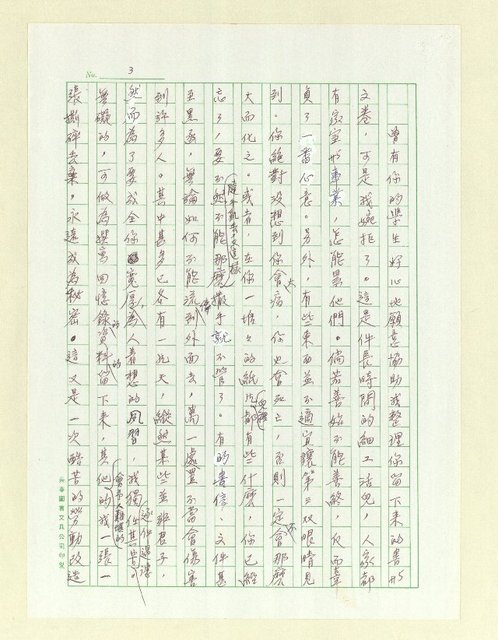 No. 3
曾有你的學生好心地願意協助我整理你留下來的書札
文卷，可是我婉拒了。這是件長時間的細工活兒，人家都
有家室和事業，怎能累他們。倘若善始不能善終，反而辜
負了一番心意。另外，有些東西並不適宜讓第二双眼睛見
到。你絕對沒想到你會病，你也會死亡，否則一定不會那麼
大而化之。或者在你一堆堆的紙片兒裡都有些什麼，你已經
忘了，要不然不能那麼撒手就不管了。有的書信、文件甚
至黑函，無論如何不能流傳到外面去，萬一處置不當會傷害
到許多人。其中甚多已各有一片天，縱然某些並非君子，
然而為了要成全你寬厚為人着想的風習，我獨
無礙的，可做為撰寫回憶錄的資料的留下來，其他的我一張一
張撕碎去棄，永遠成為秘密。這又是一次酷苦的勞動改造